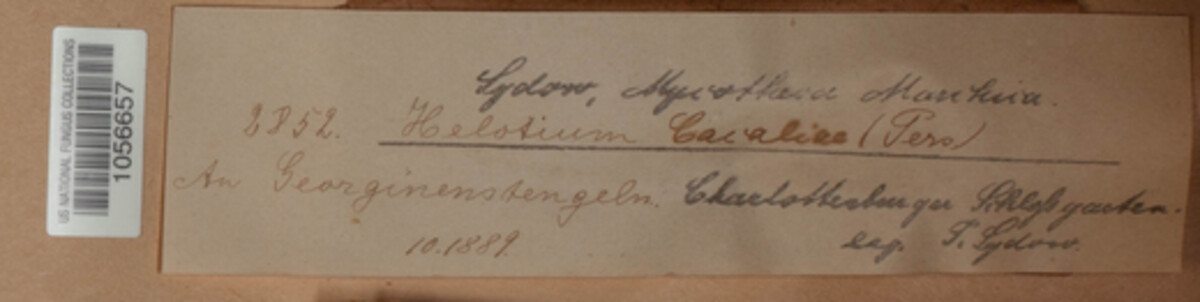 US NATIONAL FUNGUS COLLECTIONS
1056657
Sydow, Mycotheca Marchica.
2852. Helotium Cacaliae (Pers)
An Georginenstengeln. Charlottenburger Schloßgarten.
10.1889. leg. P. Sydow.